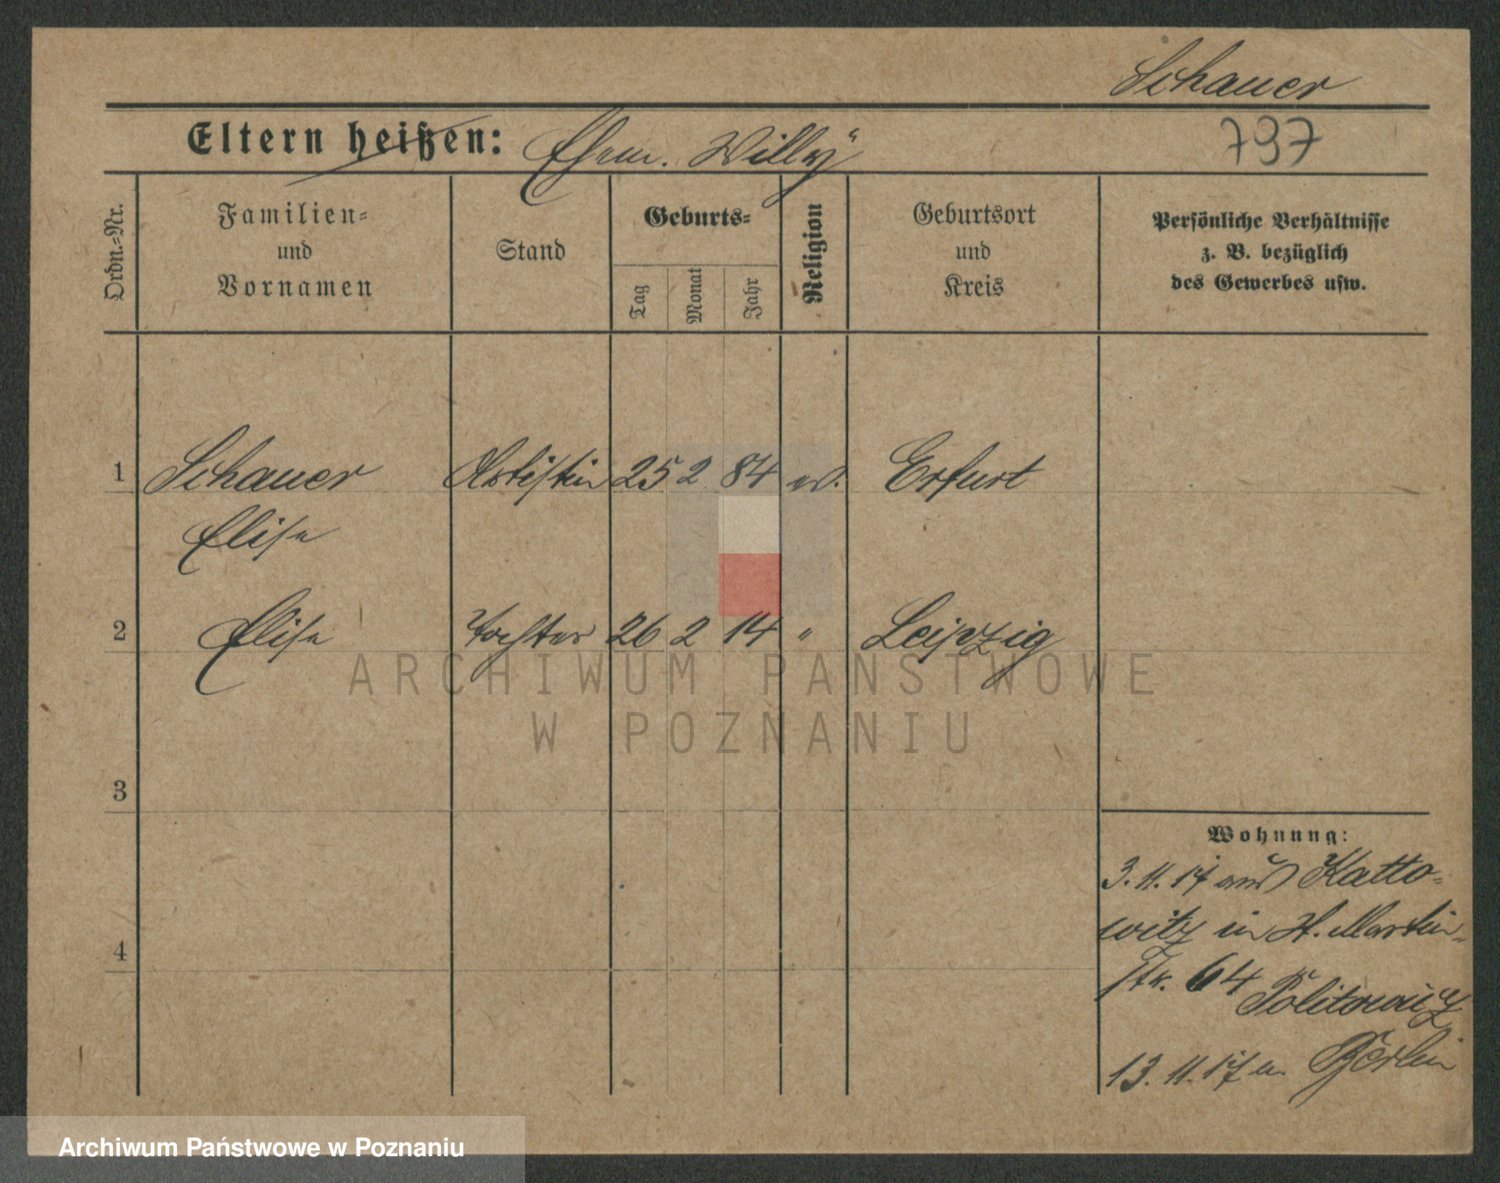 Schauer
797
Eltern heißen: Ehem. "Willy"
Ordn.=Nr.
Familien=
und
Vornamen
Stand
Geburts=
Tag
Monat
Jahr
Religion
Geburtsort
und
Kreis
Persönliche Verhältnisse
z. B. bezüglich
des Gewerbes usw.
1 Schauer Artistin 25 2 84 ev. Erfurt
Elise
2 Elise Tochter 26 2 14 " Leipzig
ARCHIWUM PAŃSTWOWE
W POZNANIU
3
4
Wohnung:
3. 11. 17 aus Katto-
witz in St. Martin-
str. 64 Politowicz
13. 11. 17 n. Berlin
Archiwum Państwowe w Poznaniu